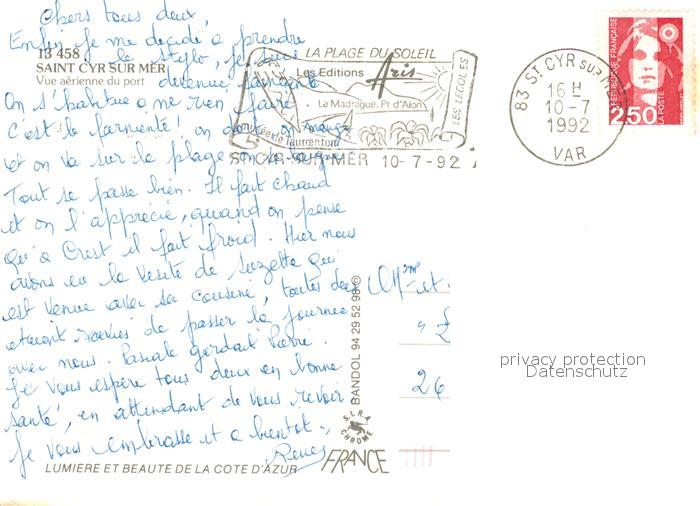 Chers tous deux
Enfin je me décide à prendre
13 458
SAINT CYR SUR MER
Vue aérienne du port
le stylo, je suis
devenue fainéante
On s'habitue a ne rien faire
C'est le farniente! on dort on mange
et on va sur la plage on se baigne
Tout se passe bien. Il fait chaud
et on l'apprécie, quand on pense
qu'à Crest il fait froid. Hier nous
avons eu la visite de Suzette qui
est venue avec sa cousine, toutes deux
étaient ravies de passer la journée
avec nous. Pascale gardait Pierre.
Je vous espère tous deux en bonne
santé, en attendant de vous revoir
Je vous embrasse et a bientot.
LUMIERE ET BEAUTE DE LA COTE D'AZUR
LA PLAGE DU SOLEIL
Les Editions Aris
La Madrague. Pt d'Alon
LES LECQUES
musée de tauroentum
ST CYR-SUR-MER 10-7-92
83 ST CYR SUR
16 H
10-7
1992
VAR
REPUBLIQUE FRANÇAISE
2,50
LA POSTE
Mme et
26
BANDOL 94 29 52 98 ©
S.I.R.A.
CHROME
FRANCE
privacy protection
Datenschutz